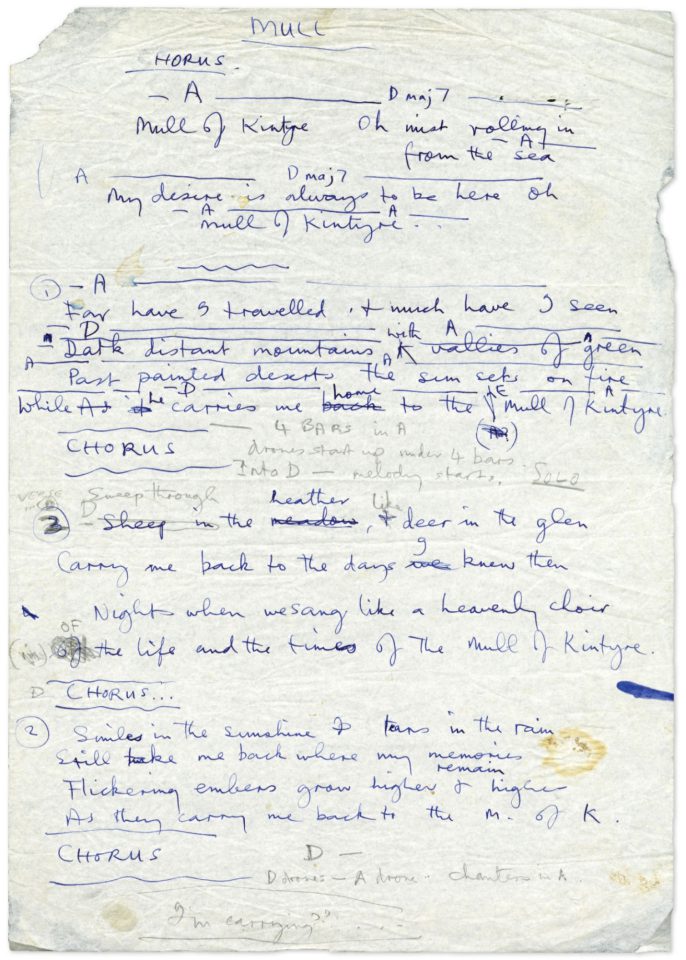 MULL
HORUS.
A Dmaj7
Mull of Kintyre Oh mist rolling in
A
from the sea
A Dmaj7
My desire is always to be here oh
A A
Mull of Kintyre...
1 - A
Far have I travelled, & much have I seen
D with A
Dark distant mountains vallies of green
A A
Past painted deserts the sun sets on fire
D home E A
While As he carries me back to the Mull of Kintyre.
4 BARS in A
CHORUS drones start up under 4 bars
Into D — melody starts.. SOLO
VERSE
Sweep through heather
D
3 - Sheep in the meadow, & deer in the glen
I
Carry me back to the days we knew then
Nights when we sang like a heavenly choir
OF
of the life and the times of The Mull of Kintyre.
D CHORUS...
2 Smiles in the sunshine & tears in the rain
Still take me back where my memories
remain
Flickering embers grow higher & higher
As they carry me back to the M. of K.
CHORUS D —
D drones — A drone. chanters in A.
I'm carrying??....